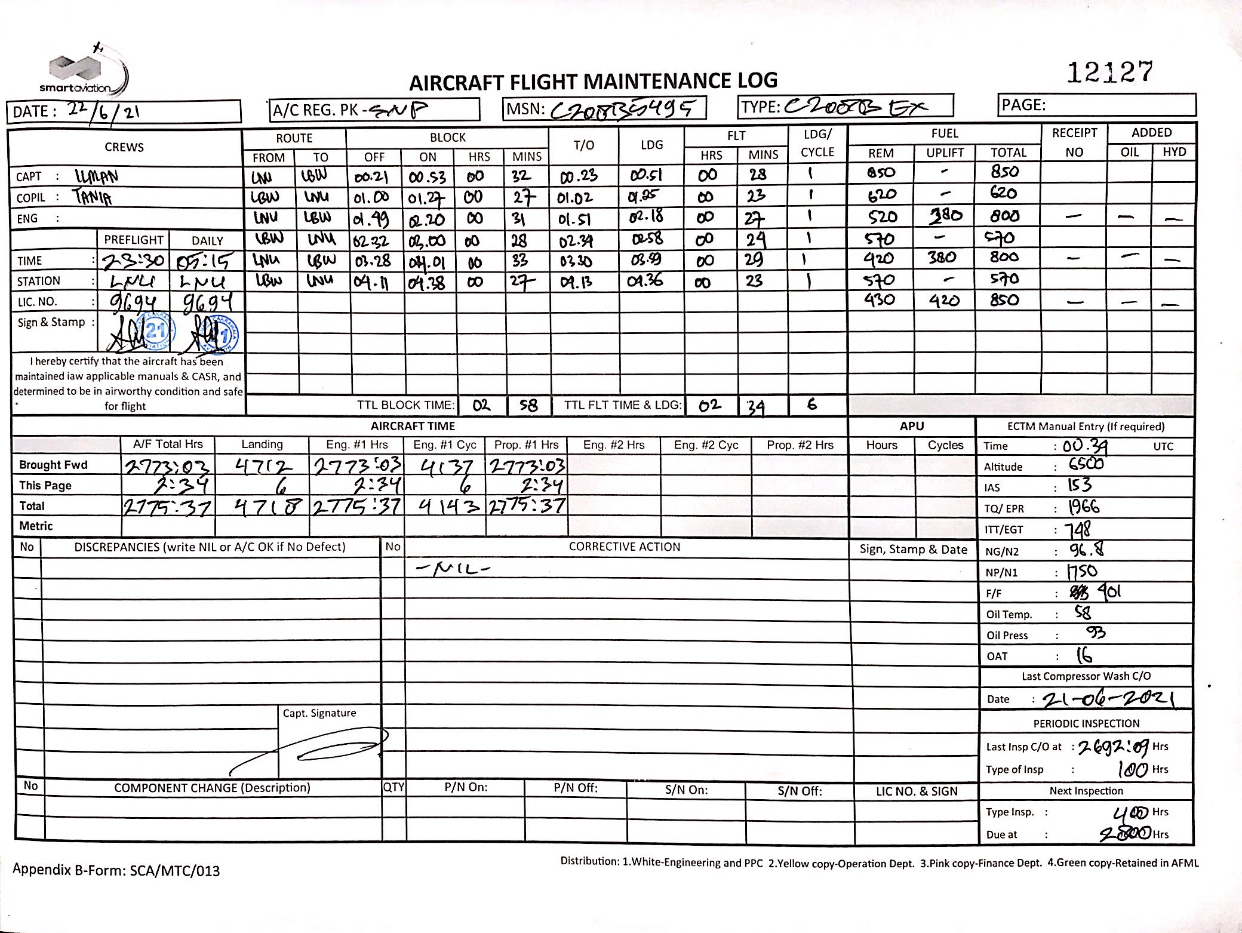 smartaviation
AIRCRAFT FLIGHT MAINTENANCE LOG
12127
DATE : 22/6/21 A/C REG. PK - SNP MSN: C208B5495 TYPE: C208B EX PAGE:
CREWS ROUTE BLOCK T/O LDG FLT LDG/ CYCLE FUEL RECEIPT NO ADDED
FROM TO OFF ON HRS MINS HRS MINS REM UPLIFT TOTAL OIL HYD
CAPT : LNU LBW 00.21 00.53 00 32 00.23 00.51 00 28 1 850 - 850
COPIL : TANIA LBW LNU 01.00 01.27 00 27 01.02 01.25 00 23 1 620 - 620
ENG : LNU LBW 01.49 02.20 00 31 01.51 02.18 00 27 1 520 380 800 — — —
PREFLIGHT DAILY LBW LNU 02.32 03.00 00 28 02.34 02.58 00 24 1 570 - 570
TIME : 23:30 05:15 LNU LBW 03.28 04.01 00 33 03.30 03.59 00 29 1 420 380 800 — — —
STATION : LNU LNU LBW LNU 04.11 04.38 00 27 04.13 04.36 00 23 1 570 - 570
LIC. NO. : 9694 9694 430 420 850 — — —
Sign & Stamp : 21
I hereby certify that the aircraft has been
maintained iaw applicable manuals & CASR, and
determined to be in airworthy condition and safe
for flight
TTL BLOCK TIME: 02 58 TTL FLT TIME & LDG: 02 34 6
AIRCRAFT TIME APU ECTM Manual Entry (If required)
A/F Total Hrs Landing Eng. #1 Hrs Eng. #1 Cyc Prop. #1 Hrs Eng. #2 Hrs Eng. #2 Cyc Prop. #2 Hrs Hours Cycles
Brought Fwd 2773:03 4712 2773:03 4137 2773:03
This Page 2:34 6 2:34 6 2:34
Total 2775:37 4718 2775:37 4143 2775:37
Metric
Time : 00.34 UTC
Altitude : 6500
IAS : 153
TQ/ EPR : 1966
ITT/EGT : 748
NG/N2 : 96.8
NP/N1 : 1750
F/F : 401
Oil Temp. : 58
Oil Press : 93
OAT : 16
No DISCREPANCIES (write NIL or A/C OK if No Defect) No CORRECTIVE ACTION Sign, Stamp & Date
-NIL-
Capt. Signature
Last Compressor Wash C/O
Date : 21-06-2021
PERIODIC INSPECTION
Last Insp C/O at : 2692:09 Hrs
Type of Insp : 100 Hrs
Next Inspection
Type Insp. : 400 Hrs
Due at : 2800 Hrs
No COMPONENT CHANGE (Description) QTY P/N On: P/N Off: S/N On: S/N Off: LIC NO. & SIGN
Distribution: 1.White-Engineering and PPC 2.Yellow copy-Operation Dept. 3.Pink copy-Finance Dept. 4.Green copy-Retained in AFML
Appendix B-Form: SCA/MTC/013